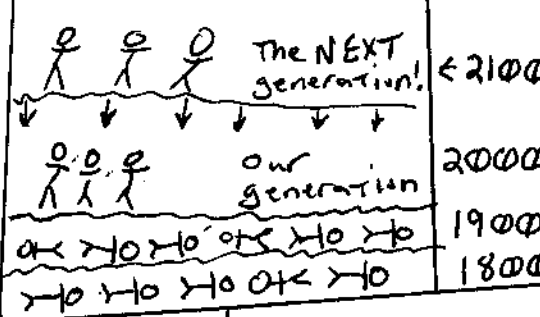 The NEXT
generation!
← 2100
our
generation
2000
1900
1800